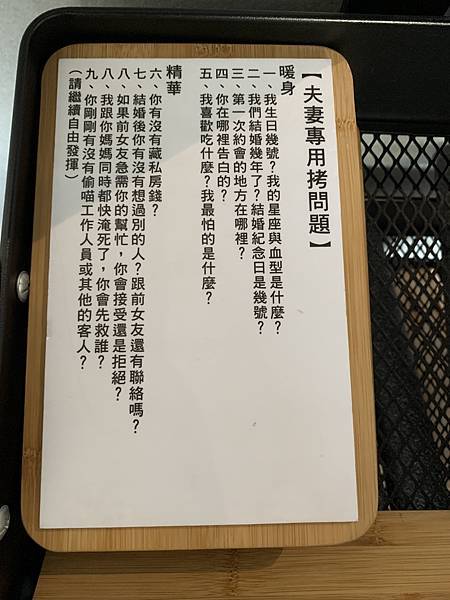 【夫妻專用拷問題】
暖身
一、我生日幾號?我的星座與血型是什麼?
二、我們結婚幾年了?結婚紀念日是幾號?
三、第一次約會的地方在哪裡?
四、你在哪裡告白的?
五、我喜歡吃什麼?我最怕的是什麼?
精華
六、你有沒有藏私房錢?
七、結婚後你有沒有想過別的人?跟前女友還有聯絡嗎?
八、如果前女友急需你的幫忙,你會接受還是拒絕?
八、我跟你媽媽同時都快淹死了,你會先救誰?
九、你剛剛有沒有偷喵工作人員或其他的客人?
(請繼續自由發揮)